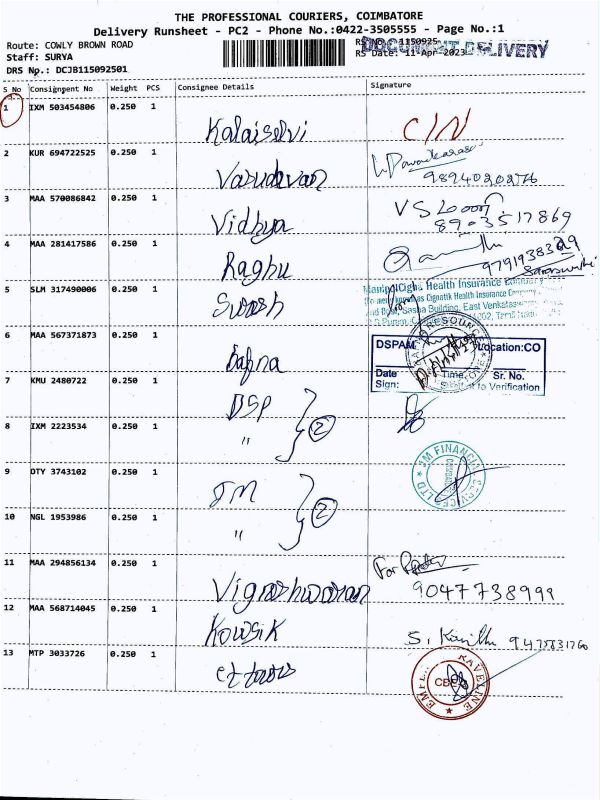 THE PROFESSIONAL COURIERS, COIMBATORE
Delivery Runsheet - PC2 - Phone No.:0422-3505555 - Page No.:1
Route: COWLY BROWN ROAD
RS No.: 1150925
DOCUMENT DELIVERY
Staff: SURYA
RS Date: 11-Apr-2023
DRS No.: DCJB115092501
S No Consignment No Weight PCS Consignee Details Signature
1 IXM 503454806 0.250 1
Kalaiselvi
2 KUR 694722525 0.250 1
Vasudevan
3 MAA 570086842 0.250 1
Vidhya
8903517869
4 MAA 281417586 0.250 1
Raghu
Saraswathi
5 SLM 317490006 0.250 1
Suresh
ManipalCigna Health Insurance Company
(formerly known as CignaTTK Health Insurance Company
6 MAA 567371873 0.250 1
DSPAM Location:CO
Date Time Sr. No.
Sign: to Verification
7 KMU 2480722 0.250 1
DSP
8 IXM 2223534 0.250 1
" 2
9 OTY 3743102 0.250 1
JM
JM FINANCIAL SERVICES LTD
10 NGL 1953986 0.250 1
" 2
11 MAA 294856134 0.250 1
Vigneshwaran
For
9047738999
12 MAA 568714045 0.250 1
Kowsik
S.
13 MTP 3033726 0.250 1
CBE